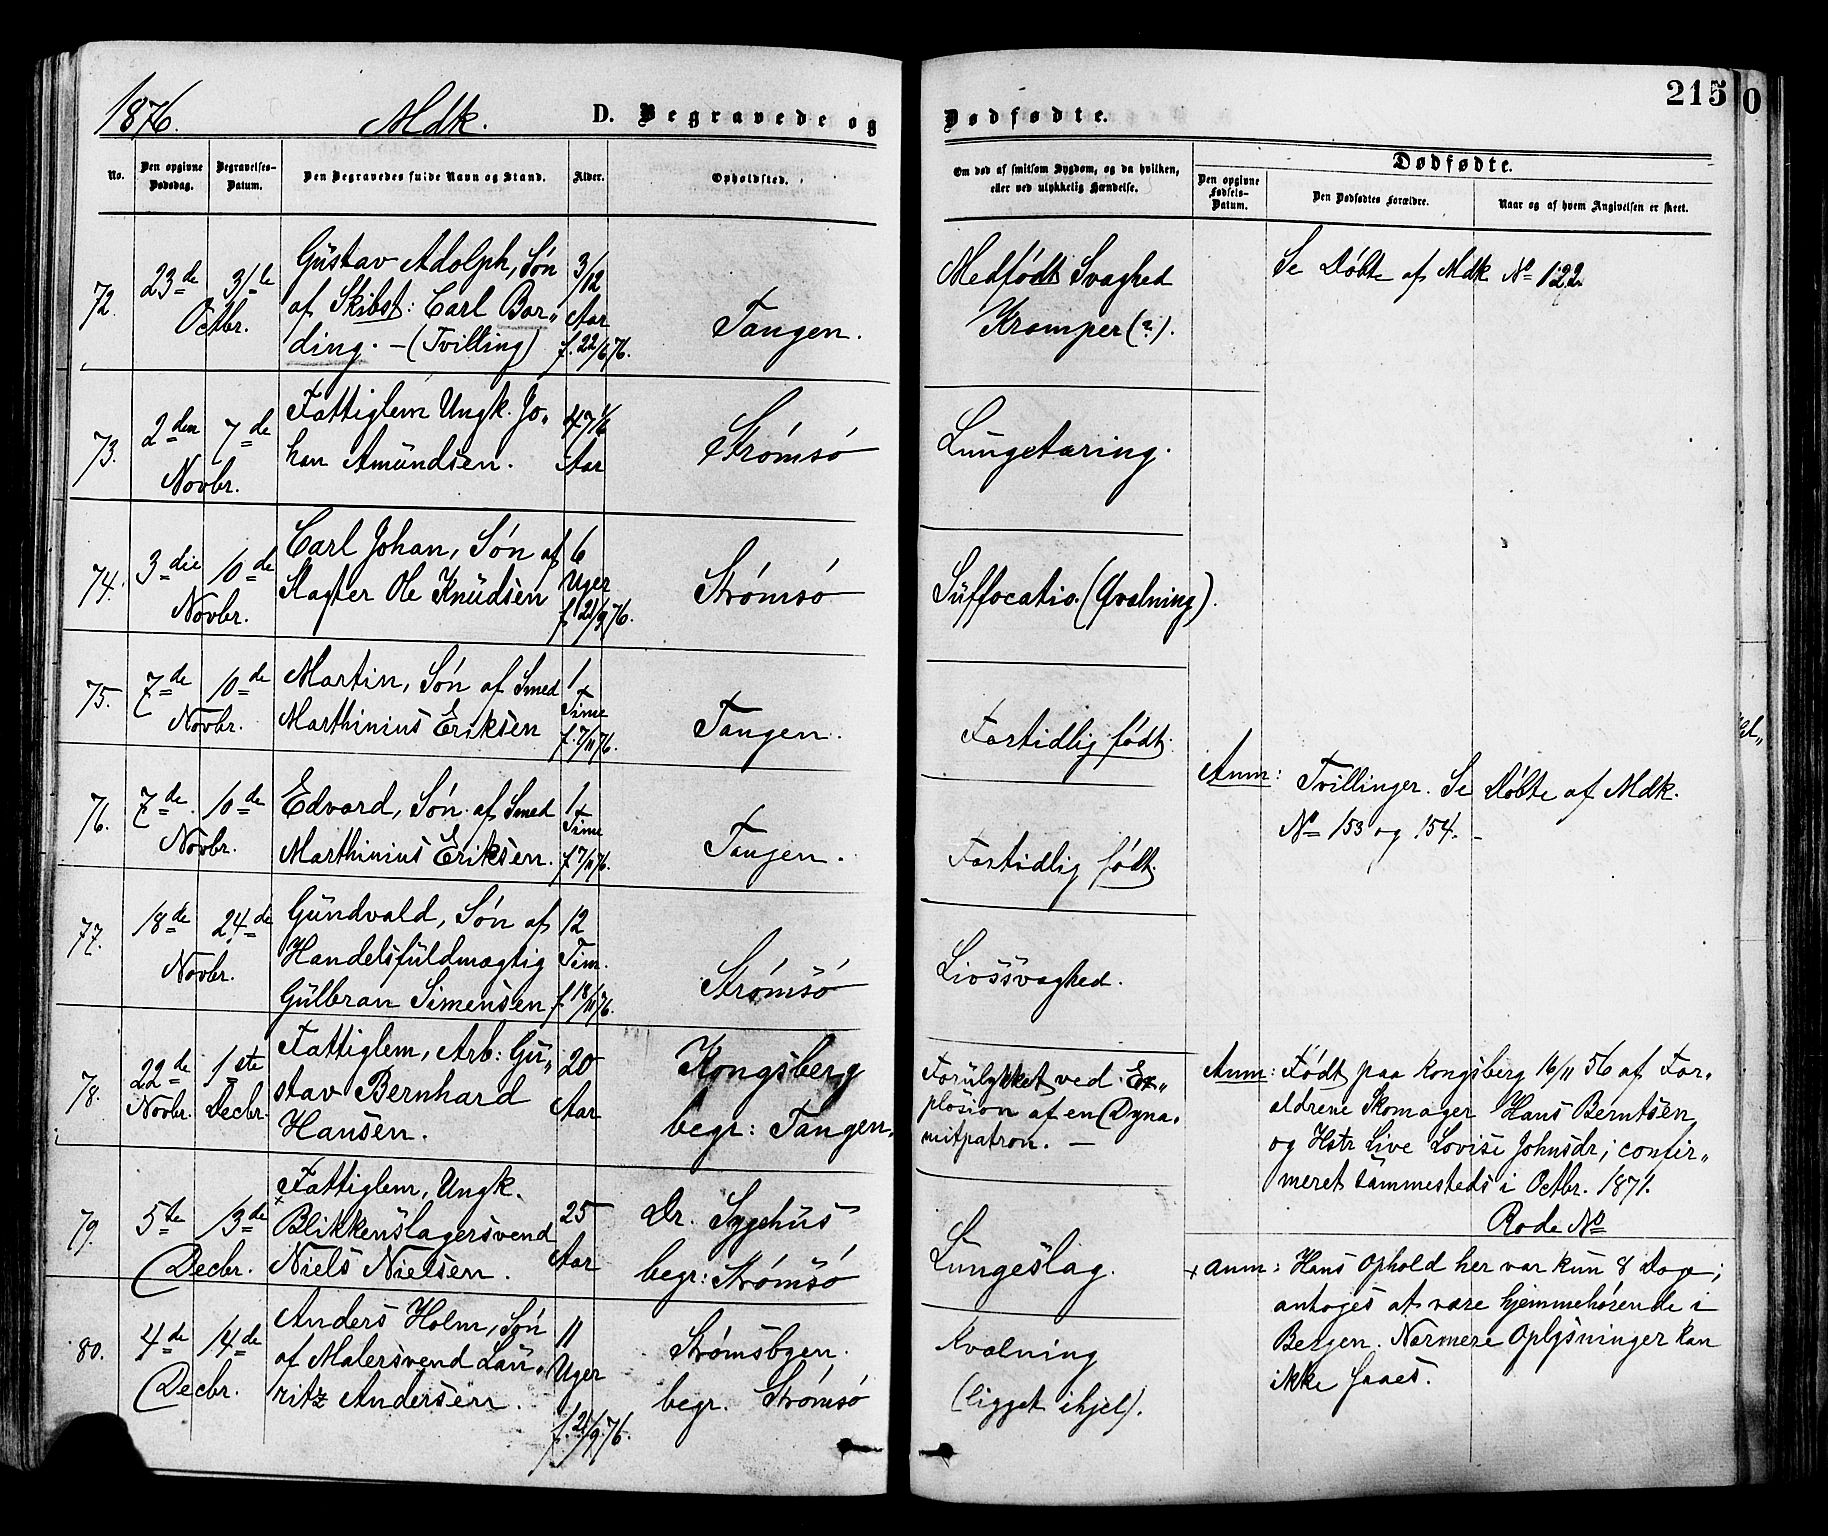 1876. Mdk. D. Begravede og Dødfødte. 215
No.
Den opgivne Dødsdag.
Begravelses-Datum.
Den Begravedes fulde Navn og Stand.
Alder.
Opholdsted.
Om død af smitsom Sygdom, og da hvilken, eller ved ulykkelig Hændelse.
Dødfødte.
Den opgivne Fødsels-Datum.
Den Dødfødtes Forældre.
Naar og af hvem Angivelsen er skeet.
72. 23de 31te Octbr.
Gustav Adolph, Søn
af Skibst: Carl Bor„
ding. – (Tvilling)
3/12
Aar
f. 22/6 76.
Tangen.
Medfødt Svaghed
Kramper (?).
Se Døbte af Mdk No 122.
73. 2den 7de Novbr.
Fattiglem Ungk. Jo„
han Amundsen.
47 1/6
Aar
Strømsø
Lungetæring.
74. 3die 10de Novbr.
Carl Johan, Søn af
Slagter Ole Knudsen
6
Uger
f. 21/9 76.
Strømsø
Suffocatio. (Qvælning).
75. 7de 10de Novbr.
Martin, Søn af Smed
Marthinius Eriksen
1
Time
f. 7/11 76.
Tangen.
Fortidlig født.
Anm: Tvillinger. Se Døbte af Mdk.
No 153 og 154. –
76. 7de 10de Novbr.
Edvard, Søn af Smed
Marthinius Eriksen.
1
Time
f 7/11 76.
Tangen.
Fortidlig født.
77. 18de 24de Novbr.
Gundvald, Søn af
Handelsfuldmægtig
Gulbran Simensen
12
Tim.
f. 18/11 76.
Strømsø
Livssvaghed.
78. 22de Novbr. 1ste Decbr.
Fattiglem, Arb: Gu„
stav Bernhard
Hansen.
20
Aar
Kongsberg
begr: Tangen.
Forulykket ved Ex„
plosion af en Dyna„
mitpatron. –
Anm: Født paa Kongsberg 16/11 56 af For„
ældrene Skomager Hans Berntsen
og Hstr Live Lovise Johnsdr; confir„
meret sammesteds i Octbr. 1871.
Rode No
79. 5te 13de Decbr.
Fattiglem, Ungk.
x Blikkenslagersvend
Niels Nielsen.
25
Aar
Dr. Sygehus
begr: Strømsø
Lungeslag.
x Anm: Hans Ophold her var kun 8 Dage;
antages at være hjemmehørende i
Bergen. Nærmere Oplysninger kan
ikke faaes.
80. 4de 14de Decbr.
Anders Holm, Søn
af Malersvend Lau„
ritz Andersen.
11
Uger
f. 21/9 76.
Strømsbyen.
begr. Strømsø
Kvælning
(ligget ihjel).